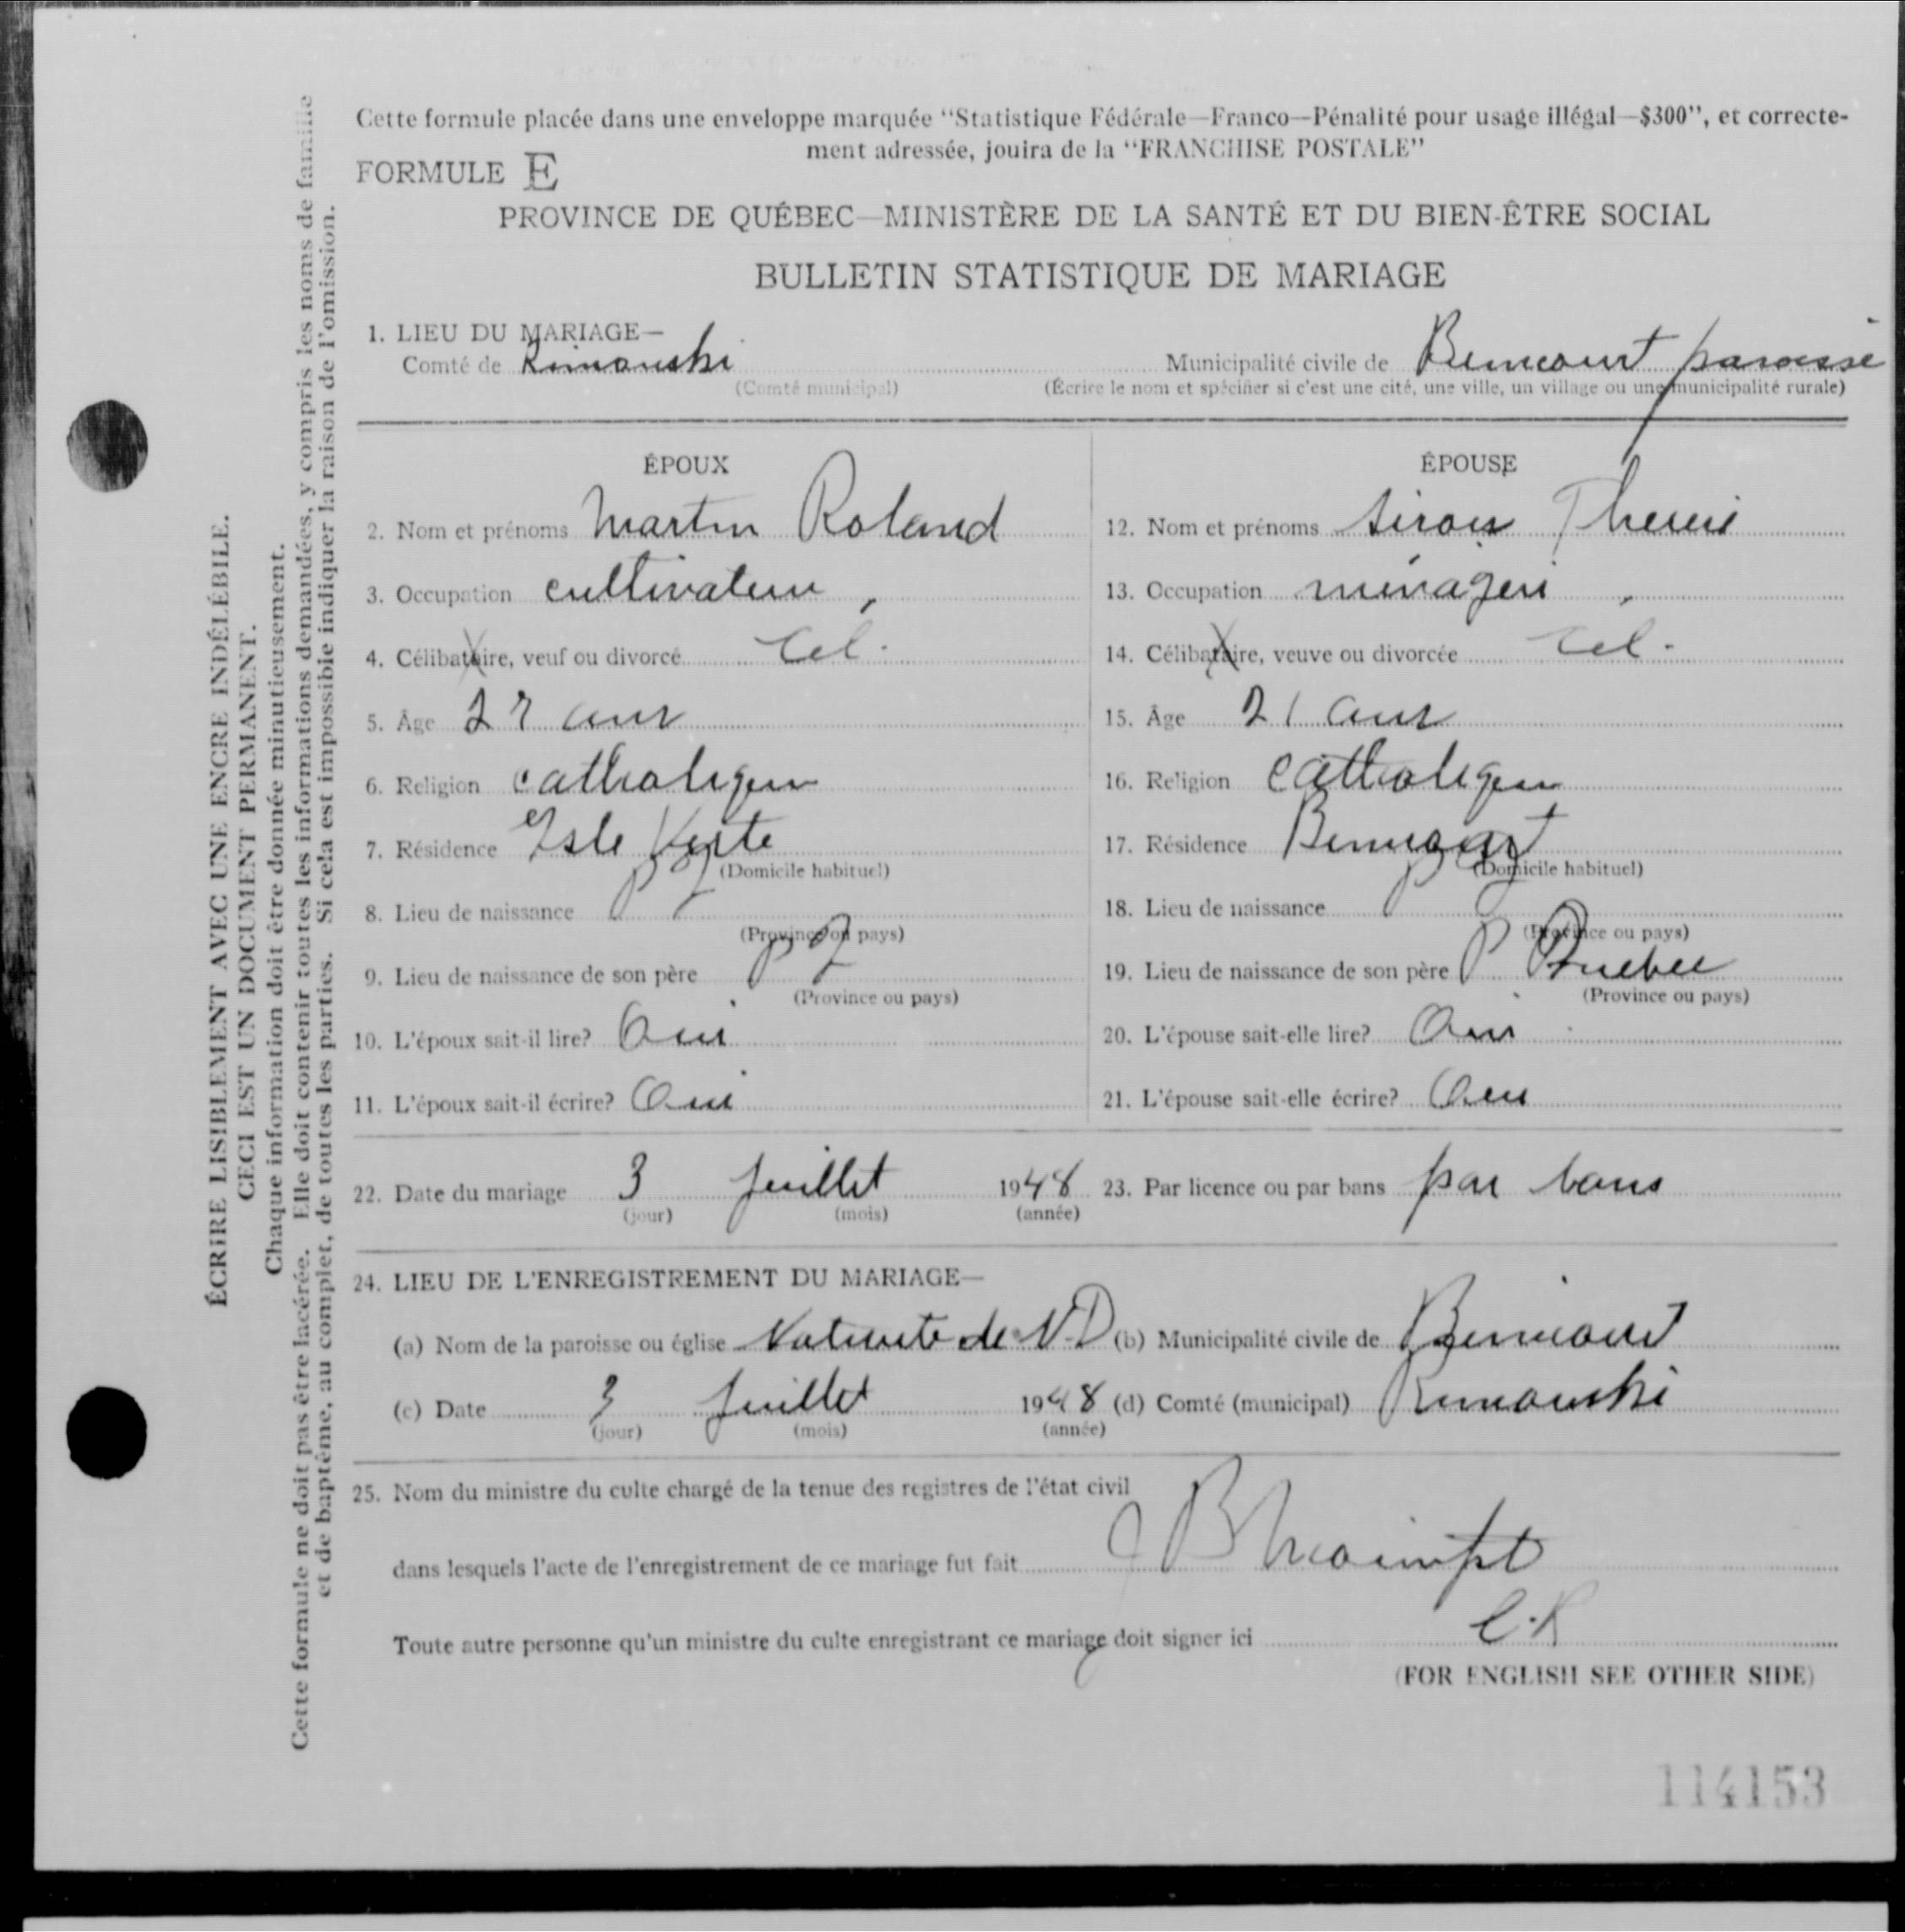 Cette formule placée dans une enveloppe marquée "Statistique Fédérale—Franco—Pénalité pour usage illégal—$300", et correcte-
ment adressée, jouira de la "FRANCHISE POSTALE"
FORMULE E
PROVINCE DE QUÉBEC—MINISTÈRE DE LA SANTÉ ET DU BIEN-ÊTRE SOCIAL
BULLETIN STATISTIQUE DE MARIAGE
1. LIEU DU MARIAGE—
Comté de Rimouski Municipalité civile de Biencourt paroisse
(Comté municipal) (Écrire le nom et spécifier si c'est une cité, une ville, un village ou une municipalité rurale)
ÉPOUX ÉPOUSE
2. Nom et prénoms Martin Roland 12. Nom et prénoms Sirois Therese
3. Occupation cultivateur 13. Occupation menagere
4. Célibataire, veuf ou divorcé Cel. 14. Célibataire, veuve ou divorcée Cel.
5. Âge 27 ans 15. Âge 21 ans
6. Religion catholique 16. Religion catholique
7. Résidence Isle Verte 17. Résidence Biencourt
(Domicile habituel) (Domicile habituel)
8. Lieu de naissance P Q 18. Lieu de naissance P Q
(Province ou pays) (Province ou pays)
9. Lieu de naissance de son père P Q 19. Lieu de naissance de son père P Quebec
(Province ou pays) (Province ou pays)
10. L'époux sait-il lire? Oui 20. L'épouse sait-elle lire? Oui
11. L'époux sait-il écrire? Oui 21. L'épouse sait-elle écrire? Oui
22. Date du mariage 3 Juillet 1948 23. Par licence ou par bans par bans
(jour) (mois) (année)
24. LIEU DE L'ENREGISTREMENT DU MARIAGE—
(a) Nom de la paroisse ou église Nativite de N.D (b) Municipalité civile de Biencourt
(c) Date 3 Juillet 1948 (d) Comté (municipal) Rimouski
(jour) (mois) (année)
25. Nom du ministre du culte chargé de la tenue des registres de l'état civil
dans lesquels l'acte de l'enregistrement de ce mariage fut fait J B
Toute autre personne qu'un ministre du culte enregistrant ce mariage doit signer ici
(FOR ENGLISH SEE OTHER SIDE)
114153
ÉCRIRE LISIBLEMENT AVEC UNE ENCRE INDÉLÉBILE.
CECI EST UN DOCUMENT PERMANENT.
Chaque information doit être donnée minutieusement.
Cette formule ne doit pas être lacérée. Elle doit contenir toutes les informations demandées, y compris les noms de famille
et de baptême, au complet, de toutes les parties. Si cela est impossible indiquer la raison de l'omission.